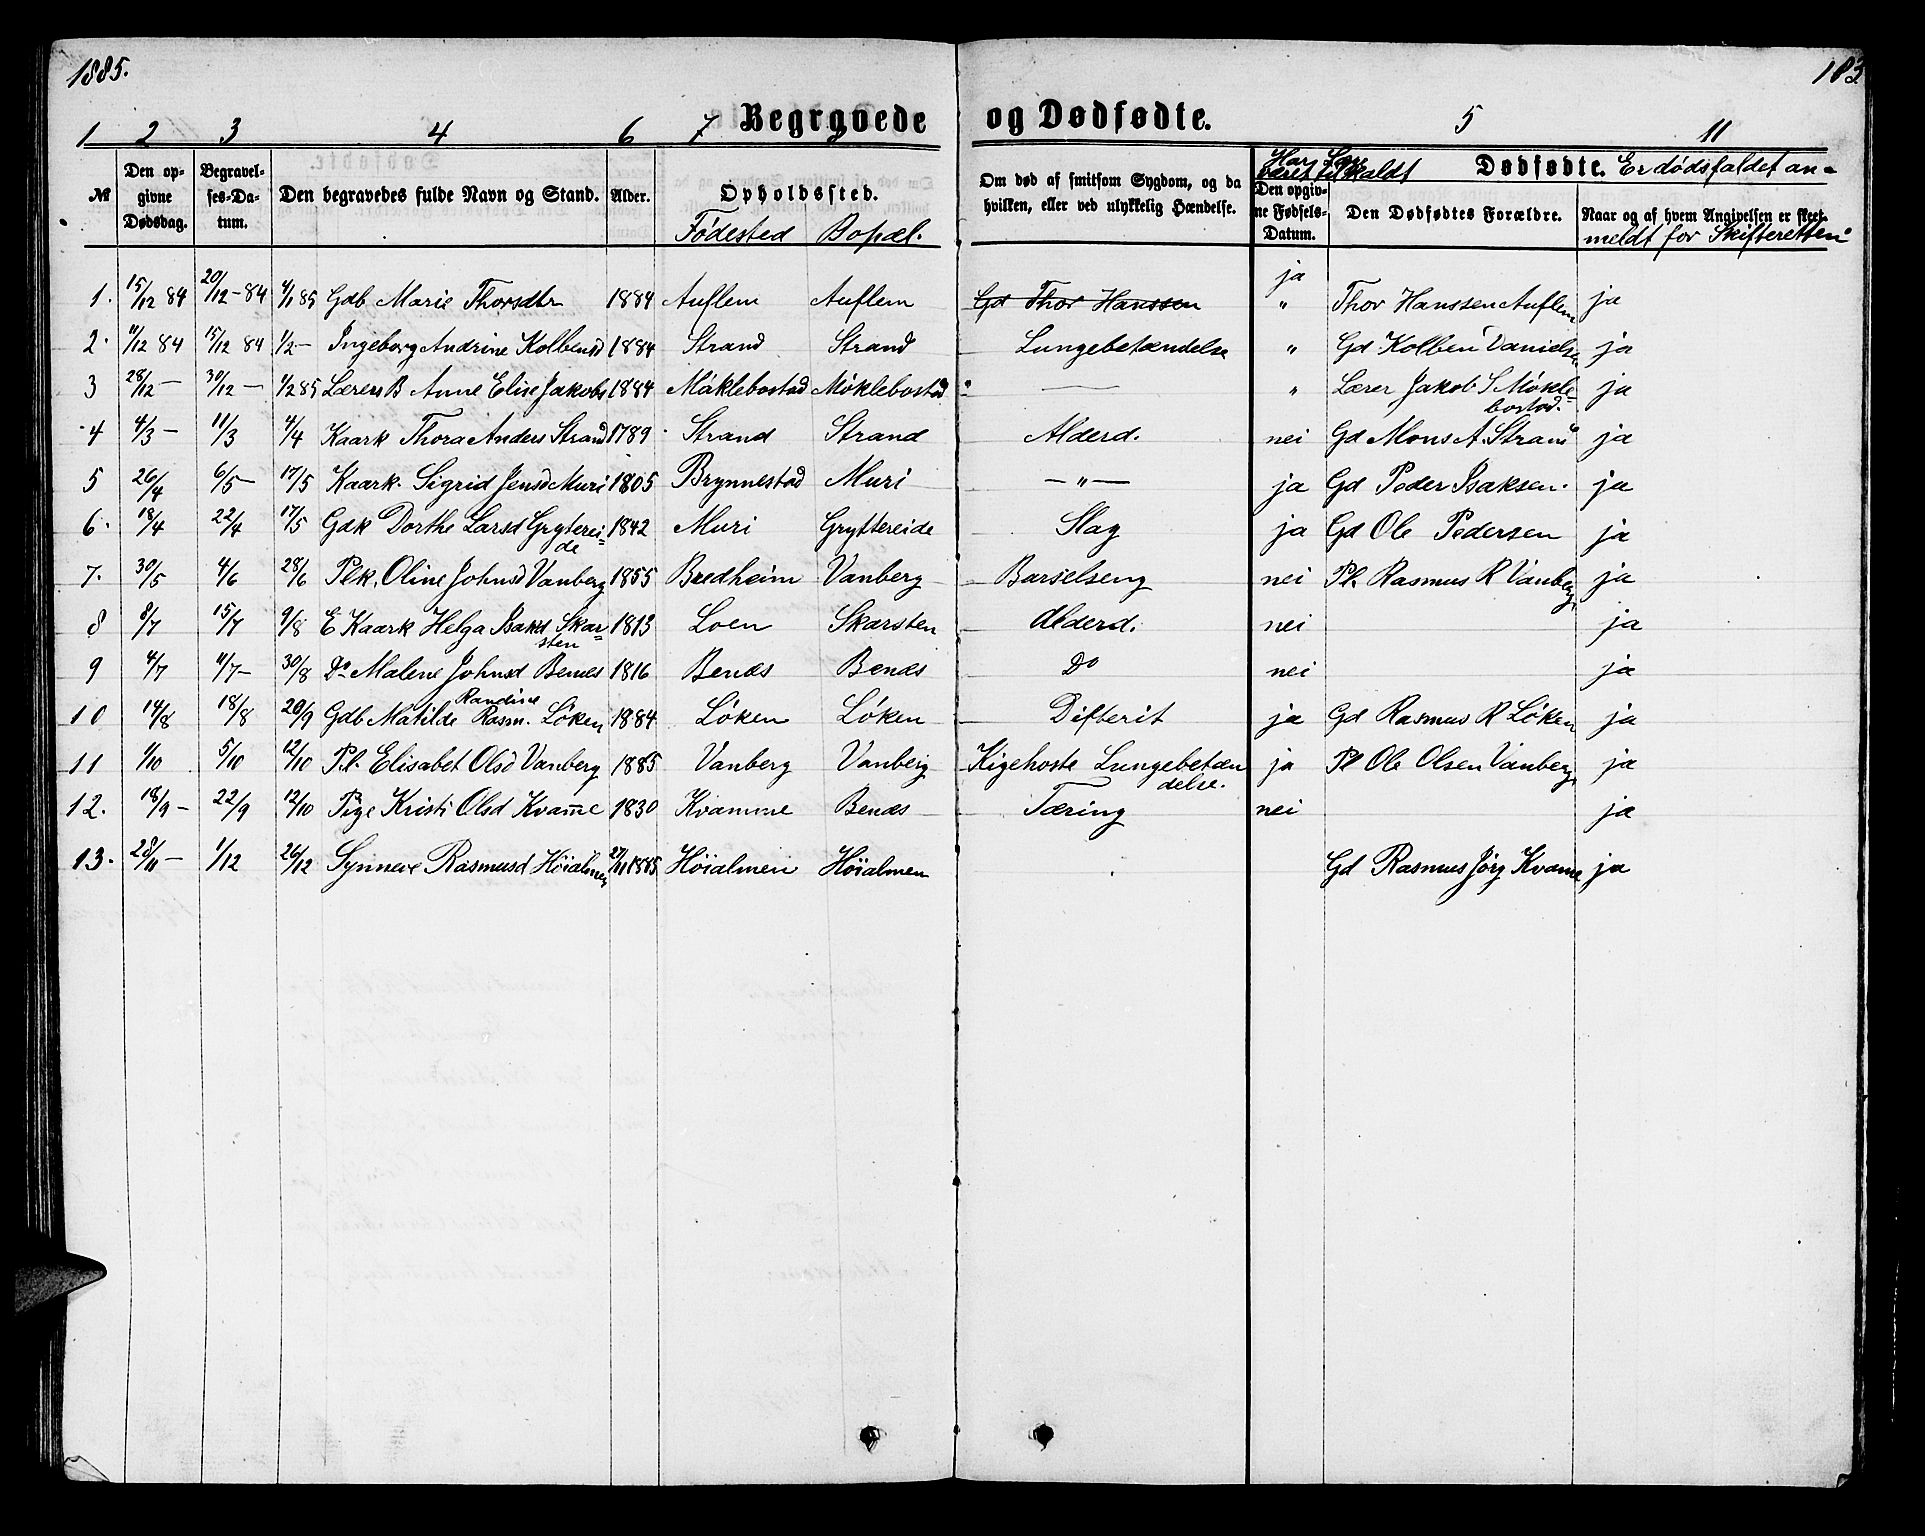 1885.
183
Begravede og Dødfødte.
1 2 3 4 6 7 8 5 11
№ Den opgivne Dødsdag. Begravelses-Datum. Den begravedes fulde Navn og Stand. Alder. Opholdssted. Fødested Bopæl.
Om død af smitsom Sygdom, og da hvilken, eller ved ulykkelig Hændelse. Har Læge været tilkaldt Den opgivne Fødsels-Datum. Dødfødte. Den Dødfødtes Forældre. Naar og af hvem Angivelsen er skeet. Er dødsfaldet anmeldt for Skifteretten
1. 15/12 84 20/12-84 4/1 85 Gdb Marie Thorsdtr 1884 Auflem Auflem Gd Thor Hanssen ja " Thor Hanssen Auflem ja
2. 11/12 84 15/12 84 1/2- Ingeborg Andrine Kolbensd 1884 Strand Strand Lungebetændelse " Gd Kolben Danielsen ja
3 28/12 - 30/12 - 1/2 85 Lærers B Anne Elise Jakobs 1884 Møklebostad Møklebostad " — " Lærer Jakob S Møklebostad. ja
4 4/3 - 11/3 4/4 Kaark Thora Anders Strand 1789 Strand Strand Alderd. nei Gd Mons A. Strand ja
5 26/4 6/5- 17/5 Kaark. Sigrid Jensd Muri 1805 Brynnestad Muri -"- ja Gd Peder Isaksen. ja
6. 18/4 22/4 17/5 Gdk Dorthe Larsd Grytereide 1842 Muri Gryttereide Slag ja Gd Ole Pedersen ja
7. 30/5 4/6 28/6 Plk. Oline Johnsd Vanberg 1855 Bredheim Vanberg Barselseng nei Pl. Rasmus R Vanberg ja
8 8/7 15/7 9/8 E Kaark Helga Isaksd Skarsten 1813 Loen Skarsten Alderd. nei ja
9 4/7 11/7- 30/8 Do Malene Johnsd Benæs 1816 Benæs Benæs Do nei ja
10 14/8 18/8 20/9 Gdb Matilde Randine Rasm. Løken 1884 Løken Løken Difterit ja Gd Rasmus R Løken ja
11 1/10 5/10 12/10 Pl. Elisabet Olsd Vanberg 1885 Vanberg Vanberg Kigehoste Lungebetændelse. ja Pl Ole Olsen Vanberg ja
12. 18/9- 22/9 12/10 Pige Kristi Olsd Kvam̅e 1830 Kvamme Benæs Tæring nei ja
13. 28/11- 1/12 26/12 Synneve Rasmusd Høialmen 27/11 1885 Høialmen Høialmen Gd Rasmus Jørg Kvame ja